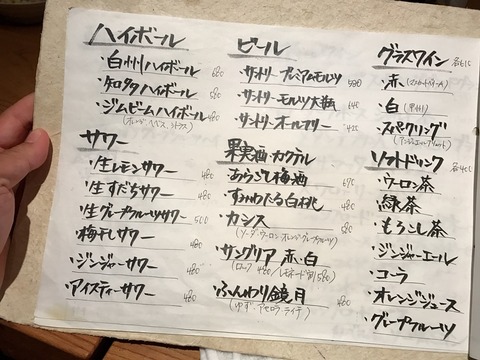 ハイボール
・白州ハイボール 680
・知多ハイボール 580
・ジムビームハイボール 480
サワー
・生レモンサワー 480
・生すだちサワー 480
・生グレープフルーツサワー 500
・梅干しサワー 480
・ジンジャーサワー 480
・アイスティーサワー 480
ビール
・サントリープレミアムモルツ 580
・サントリーモルツ大瓶 640
・サントリーオールフリー 425
果実酒・カクテル
・あらごし梅酒 670
・すみわたる白桃 480
・カシス
(ソーダ・ウーロン・オレンジ・グレープフルーツ)
・サングリア 赤・白
・ふんわり鏡月
(ゆず・アセロラ・ライチ)
グラスワイン
・赤
・白 (甲州)
・スパークリング
ソフトドリンク 各400
・ウーロン茶
・緑茶
・もろこし茶
・ジンジャーエール
・コーラ
・オレンジジュース
・グレープフルーツ